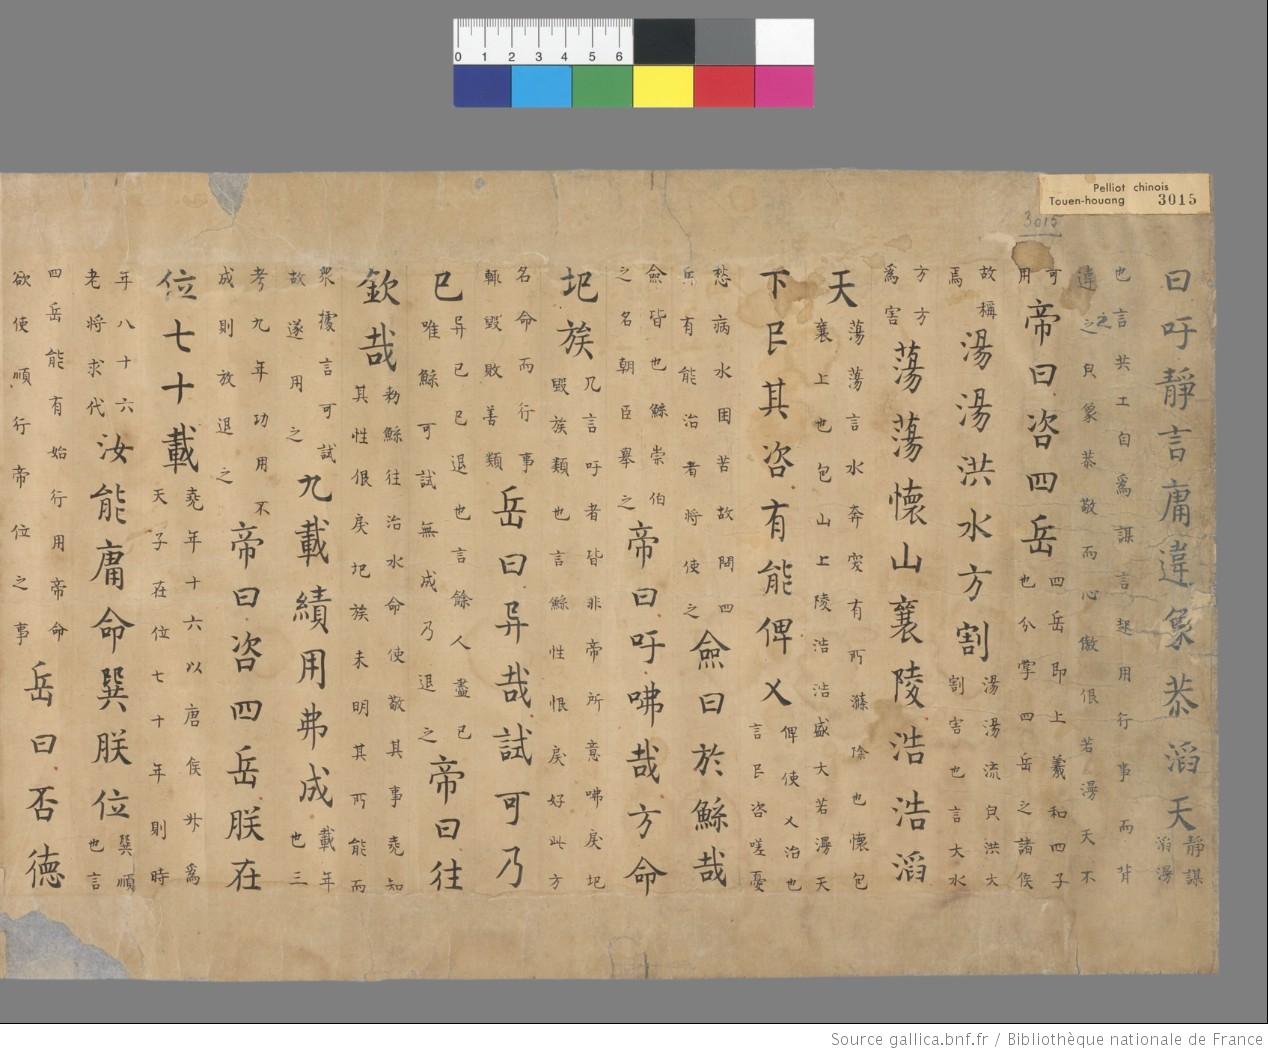 Pelliot chinois
Touen-houang 3015
3015
0 1 2 3 4 5 6
曰吁靜言庸違象恭滔天靜謀滔漫
也言共工自爲謀言起用行事而背
違之皃象恭敬而心傲佷若漫天不
可用帝曰咨四岳四岳即上羲和四子也分掌四岳之諸侯
故稱焉湯湯洪水方割湯湯流皃洪大割害也言大水
方方爲害蕩蕩懷山襄陵浩浩滔
天蕩蕩言水奔突有所滌除也懷包襄上也包山上陵浩浩盛大若漫天
下民其咨有能俾乂俾使乂治也言民咨嗟憂
愁病水困苦故問四岳有能治者將使之僉曰於鯀哉
僉皆也鯀崇伯之名朝臣舉之帝曰吁咈哉方命
圮族凡言吁者皆非帝所意咈戾圮毀族類也言鯀性恨戾好此方
名命而行事輒毀敗善類岳曰异哉試可乃
已异已已退也言餘人盡已唯鯀可試無成乃退之帝曰往
欽哉勑鯀往治水命使敬其事堯知其性佷戾圮族未明其所能而
衆據言可試故遂用之九載績用弗成載年也三
考九年功用不成則放退之帝曰咨四岳朕在
位七十載堯年十六以唐侯升爲天子在位七十年則時
年八十六老將求代汝能庸命巽朕位巽順也言
四岳能有始行用帝命欲使順行帝位之事岳曰否德
Source gallica.bnf.fr / Bibliothèque nationale de France